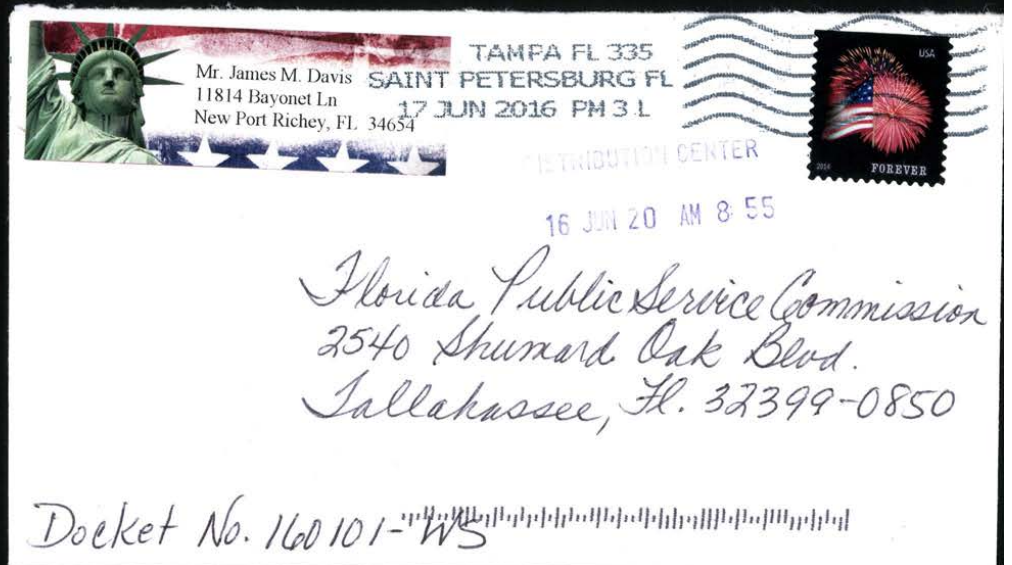 Mr. James M. Davis
11814 Bayonet Ln
New Port Richey, FL 34654
TAMPA FL 335
SAINT PETERSBURG FL
17 JUN 2016 PM 3 L
USA
2014
FOREVER
DISTRIBUTION CENTER
16 JUN 20 AM 8:55
Florida Public Service Commission
2540 Shumard Oak Blvd.
Tallahassee, Fl. 32399-0850
Docket No. 160101-WS